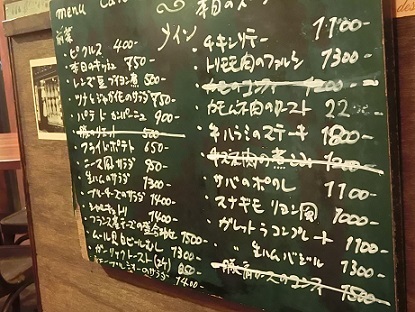 menu Cafe
本日のスープ
前菜
・ピクルス 400-
・本日のキッシュ 750-
・レンズ豆のリヨン煮 500-
・ツナとじゃがいものサラダ 750-
・パテ ド カンパーニュ 900-
500-
・フライドポテト 650-
・ニース風サラダ 950-
・生ハムのサラダ 1300-
・ブルーチーズのサラダ 1400-
・シャルキュトリ 1400-
・フランス産チーズの盛合わせ 1500-
・ムール貝白ビールむし 1300-
・ガーリックトースト(2ケ) 250-
のサラダ 1400-
メイン
・チキンソテー 1100-
・トリモモ肉のファルシ 1300-
1200-
・カモムネ肉のロースト 22
・牛ハラミのステーキ 1800-
1200-
・サバのポワレ 1100-
・スナギモ リヨン風 1000-
・ガレット コンプレート 1100-
・ 〃 生ハムバジル 1300-
のコンフィ 1500-